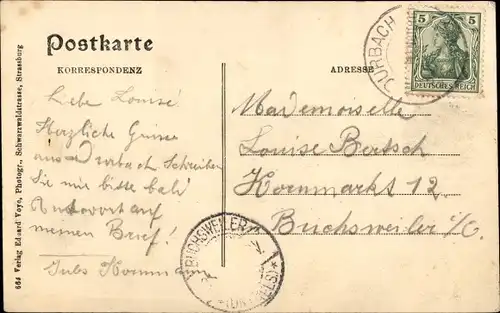 Postkarte
KORRESPONDENZ
ADRESSE
5 5
DEUTSCHES REICH
URBACH
Liebe Louise!
Herzliche Grüsse
aus Urbach Schreiben
Sie mir bitte bald
Antwort auf
meinen Brief!
Jules
Mademoiselle
Louise Bertsch
Kornmarkt 12
Buchsweiler i/E.
BUCHSWEILER
(UNT. ELS)
664 Verlag Eduard Voye, Photogr., Schwarzwaldstrasse, Strassburg